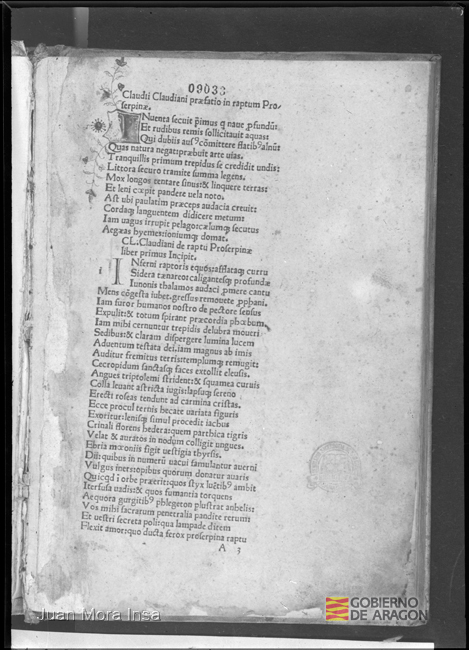 09033
Claudii Claudiani præfatio in raptum Pro-
serpinæ.
INuenta secuit p̄imus q̄ naue ꝓfundū:
Et rudibus remis sollicitauit aquas:
Qui dubiis ausꝰ cōmittere flatibꝰ alnū:
Quas natura negat: præbuit arte uias.
Tranquillis primum trepidus se credidit undis:
Littora securo tramite summa legens.
Mox longos tentare sinus: & linquere terras:
Et leni cœpit pandere uela noto.
Ast ubi paulatim præceps audacia creuit:
Cordaq; languentem didicere metum:
Iam uagus irrupit pelago: cælumq; secutus
Aegæas hyemes: ioniumq; domat.
CL. Claudiani de raptu Proserpinæ
liber primus Incipit.
i
INferni raptoris equos: afflataq; curru
Sidera tænareo: caligantesq; profundæ
Iunonis thalamos audaci ꝓmere cantu
Mens cōgesta iubet. gressus remouete ꝓphani.
Iam furor humanos nostro de pectore sensus
Expulit: & totum spirant præcordia phœbum.
Iam mihi cernuntur trepidis delubra moueri
Sedibus: & claram dispergere lumina lucem
Aduentum testata dei. iam magnus ab imis
Auditur fremitus terris: templumq; remugit
Cecropidum: sanctasq; faces extollit eleusis.
Angues triptolemi strident: & squamea curuis
Colla leuant attricta iugis: lapsuq; sereno
Erecti roseas tendunt ad carmina cristas.
Ecce procul ternis hecate uariata figuris
Exoritur: lenisq; simul procedit iachus
Crinali florens hedera: quem parthica tigris
Velat & auratos in nodum colligit ungues.
Ebria mœoniis figit uestigia thyrsis.
Dii: quibus in numerū uacui famulantur auerni
Vulgus iners: opibus quorum donatur auaris
Quicqd ī orbe pærit: quos styx luētibꝰ ambit
Iterfusa uadis: & quos fumantia torquens
Aequora gurgitibꝰ phlegeton plustrat anhelis:
Vos mihi sacrarum penetralia pandite rerum:
Et uestri secreta poli: qua lampade ditem
Flexit amor: quo ducta ferox proserpina raptu
A 3
Juan Mora Insa
GOBIERNO
DE ARAGON